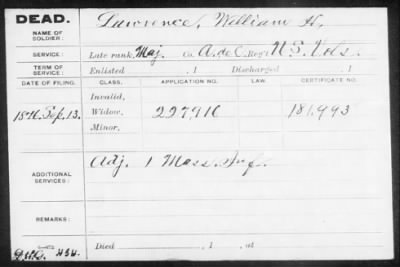 DEAD.
NAME OF SOLDIER: Lawrence, William H.
SERVICE: Late rank, Maj. Co. A.de C. Reg't U.S. Vols.
TERM OF SERVICE: Enlisted , 1 Discharged , 1
DATE OF FILING. CLASS. APPLICATION NO. LAW. CERTIFICATE NO.
Invalid,
1876. Sep. 13. Widow, 227916 181,993
Minor,
ADDITIONAL SERVICES: Adj. 1 Mass. Inf.
REMARKS:
Died , 1 , at